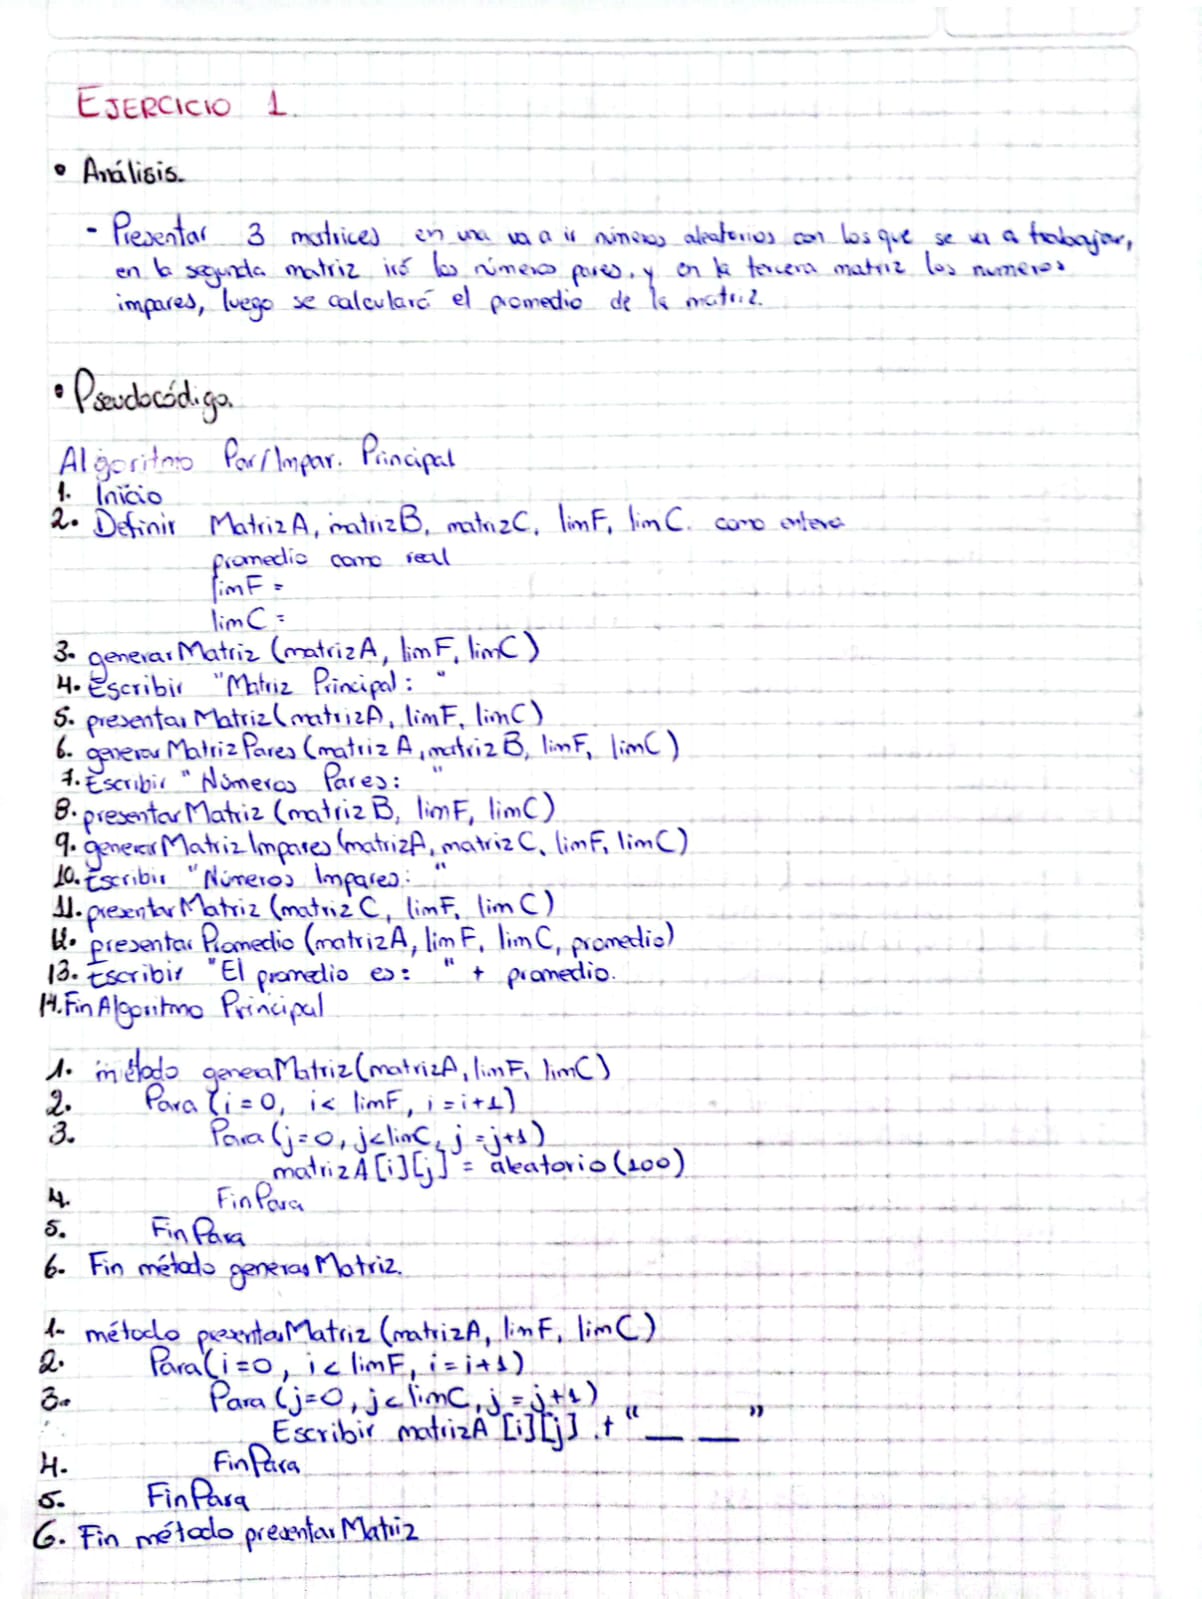 EJERCICIO 1.
• Análisis.
- Presentar 3 matrices en una va a ir números aleatorios con los que se va a trabajar,
en la segunda matriz irá los números pares, y en la tercera matriz los numeros
impares, luego se calculará el promedio de la matriz.
• Pseudocódigo.
Algoritmo Par/Impar. Principal
1. Inicio
2. Definir MatrizA, matrizB, matrizC, limF, limC. como entero
promedio como real
limF =
limC =
3. generarMatriz (matrizA, limF, limC)
4. Escribir "Matriz Principal: "
5. presentarMatriz(matrizA, limF, limC)
6. generarMatrizPares (matrizA, matrizB, limF, limC)
7. Escribir "Números Pares: "
8. presentarMatriz (matrizB, limF, limC)
9. generarMatrizImpares (matrizA, matrizC, limF, limC)
10. Escribir "Números Impares: "
11. presentarMatriz (matrizC, limF, limC)
12. presentarPromedio (matrizA, limF, limC, promedio)
13. Escribir "El promedio es: " + promedio.
14. FinAlgoritmo Principal
1. método generaMatriz(matrizA, limF, limC)
2. Para (i = 0, i < limF, i = i+1)
3. Para (j=0, j<limC, j = j+1)
matrizA[i][j] = aleatorio(100)
4. FinPara
5. FinPara
6. Fin método generarMatriz.
1. método presentarMatriz (matrizA, limF, limC)
2. Para(i=0, i < limF, i = i+1)
3. Para (j=0, j < limC, j = j+1)
Escribir matrizA [i][j] + "__ __"
4. FinPara
5. FinPara
6. Fin método presentarMatriz